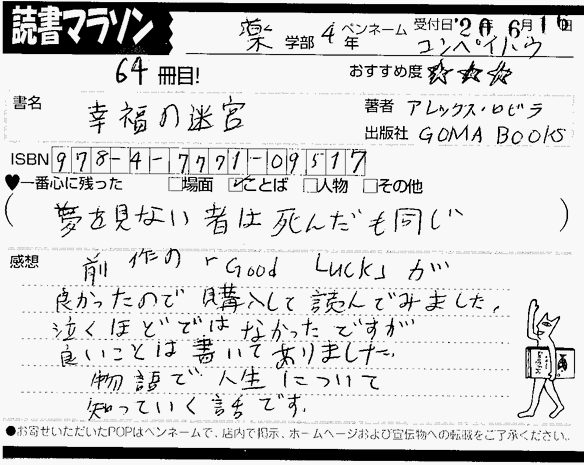 読書マラソン
薬 学部 4 年 ペンネーム コンペイトウ 受付日 '20年 6月 16日
64 冊目! おすすめ度 ☆☆☆
書名 幸福の迷宮 著者 アレックス・ロビラ
出版社 GOMA BOOKS
ISBN 978-4-7771-09517
♥一番心に残った □場面 ☑ことば □人物 □その他
( 夢を見ない者は死んだも同じ )
感想 前作の「Good Luck」が
良かったので購入して読んでみました。
泣くほどではなかったですが
良いことは書いてありました。
物語で人生について
知っていく話です。
●お寄せいただいたPOPはペンネームで、店内で掲示、ホームページおよび宣伝物への転載をご了承ください。